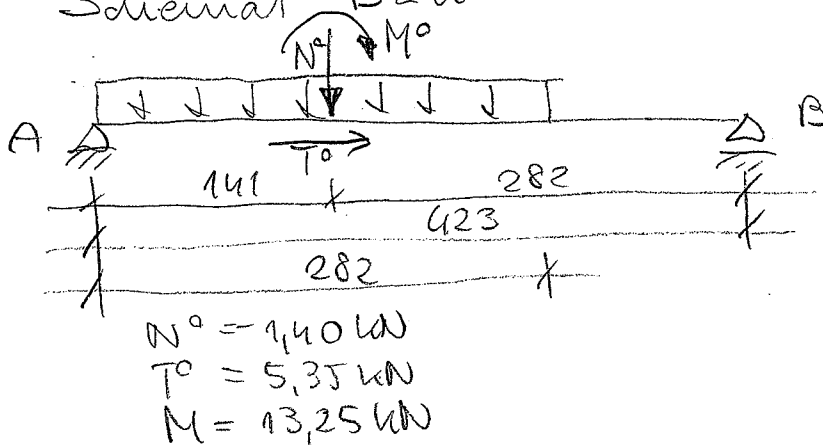 Schemat
N° M°
A B
T°
141 282
423
282
N° = -1,40 kN
T° = 5,35 kN
M = 13,25 kN